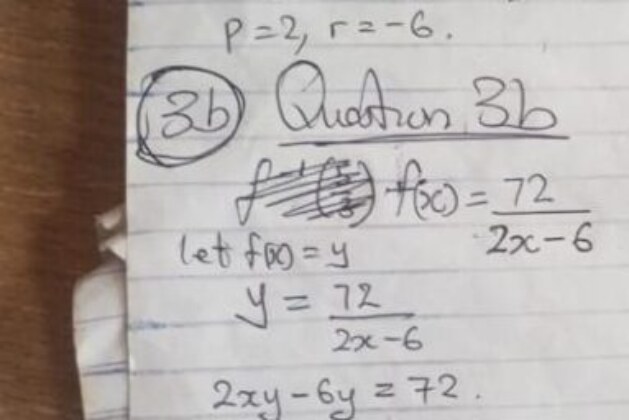 p=2, r=-6.
3b Question 3b
f(x) = 72
2x-6
let f(x) = y
y = 72
2x-6
2xy-6y = 72.